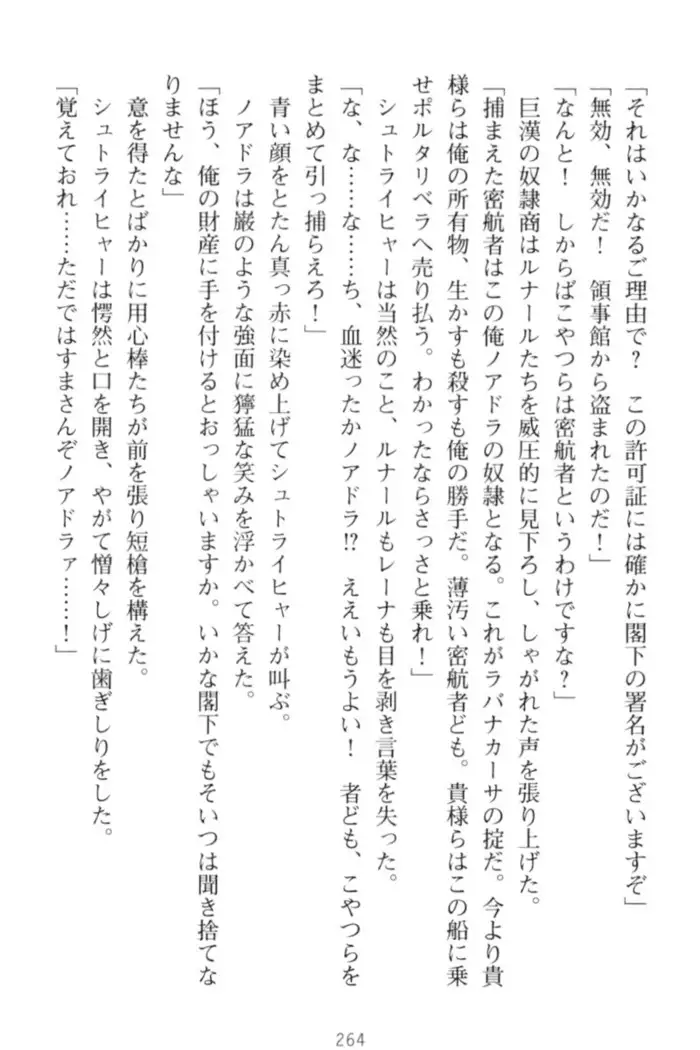 「それはいかなるご理由で？　この許可証には確かに閣下の署名がございますぞ」
「無効、無効だ！　領事館から盗まれたのだ！」
「なんと！　しからばこやつらは密航者というわけですな？」
巨漢の奴隷商はルナールたちを威圧的に見下ろし、しゃがれた声を張り上げた。
「捕まえた密航者はこの俺ノアドラの奴隷となる。これがラバナカーサの掟だ。今より貴
様らは俺の所有物、生かすも殺すも俺の勝手だ。薄汚い密航者ども。貴様らはこの船に乗
せポルタリベラへ売り払う。わかったならさっさと乗れ！」
シュトライヒャーは当然のこと、ルナールもレーナも目を剥き言葉を失った。
「な、な……な……ち、血迷ったかノアドラ!?　ええいもうよい！　者ども、こやつらを
まとめて引っ捕らえろ！」
青い顔をとたん真っ赤に染め上げてシュトライヒャーが叫ぶ。
ノアドラは巌のような強面に獰猛な笑みを浮かべて答えた。
「ほう、俺の財産に手を付けるとおっしゃいますか。いかな閣下でもそいつは聞き捨てな
りませんな」
意を得たとばかりに用心棒たちが前を張り短槍を構えた。
シュトライヒャーは愕然と口を開き、やがて憎々しげに歯ぎしりをした。
「覚えておれ……ただではすまさんぞノアドラァ……！」
264